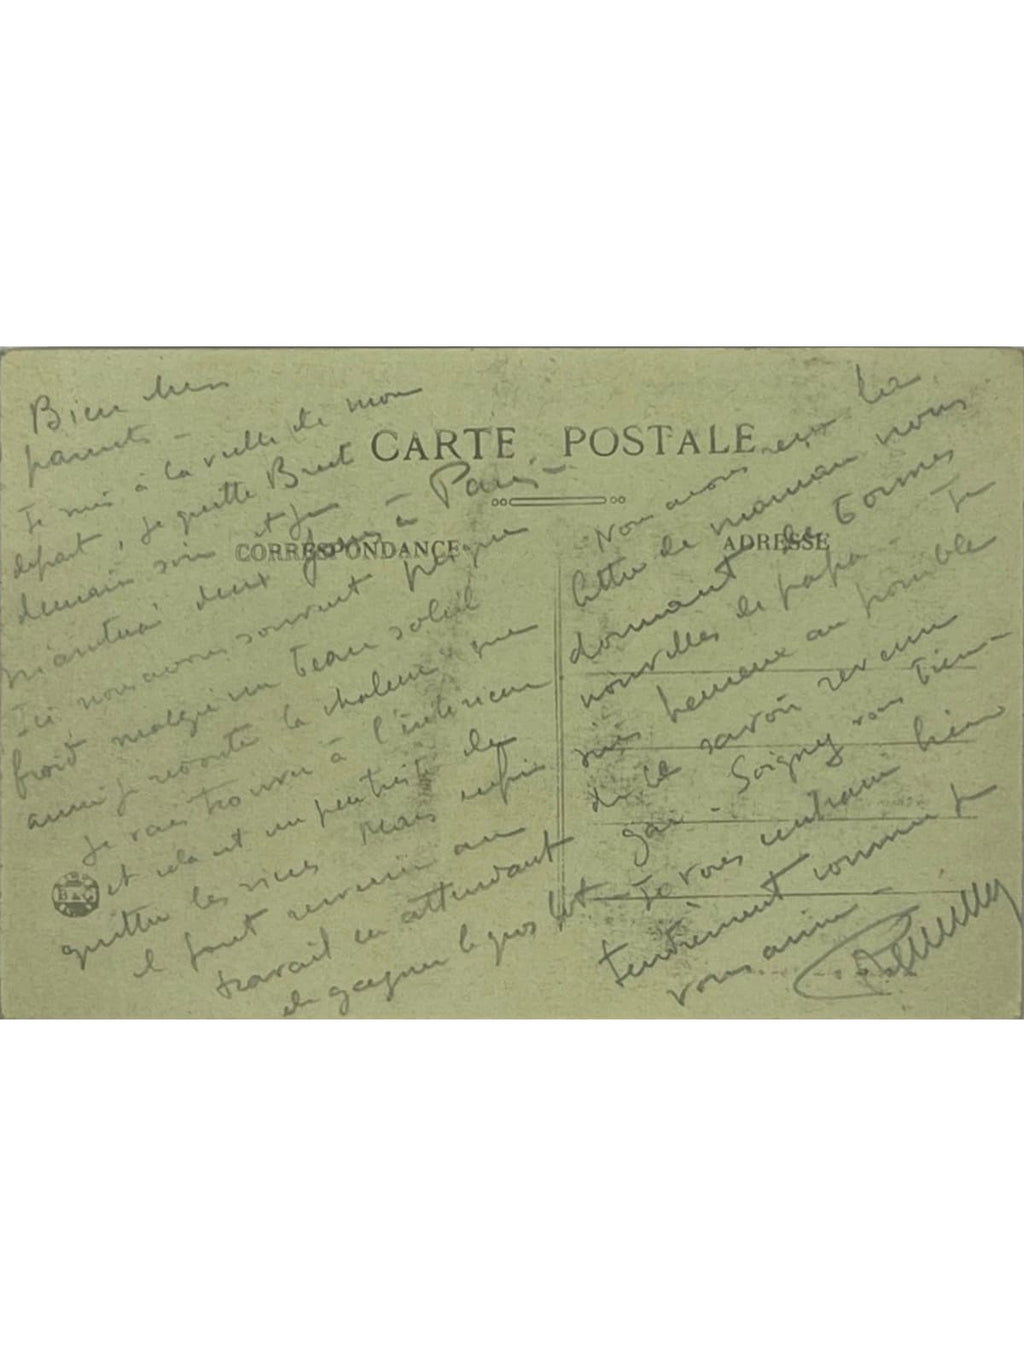 CARTE POSTALE
CORRESPONDANCE
ADRESSE
Bien chers
parents -
Je suis à la veille de mon
départ, je quitte Brest
demain soir et je
m'arrêterai deux jours à Paris -
Ici nous avons souvent presque
froid malgré un beau soleil
aussi je redoute la chaleur que
je vais trouver à l'intérieur
et cela est un peu triste de
quitter les siens Mais enfin
il faut revenir au
travail en attendant
de gagner le gros lot -
Nous avons reçu la
lettre de maman nous
donnant de bonnes
nouvelles de papa - Je
suis heureux au possible
de le savoir revenu
gai - Soignez vous bien -
Je vous embrasse bien
tendrement comme je
vous aime -
B&C